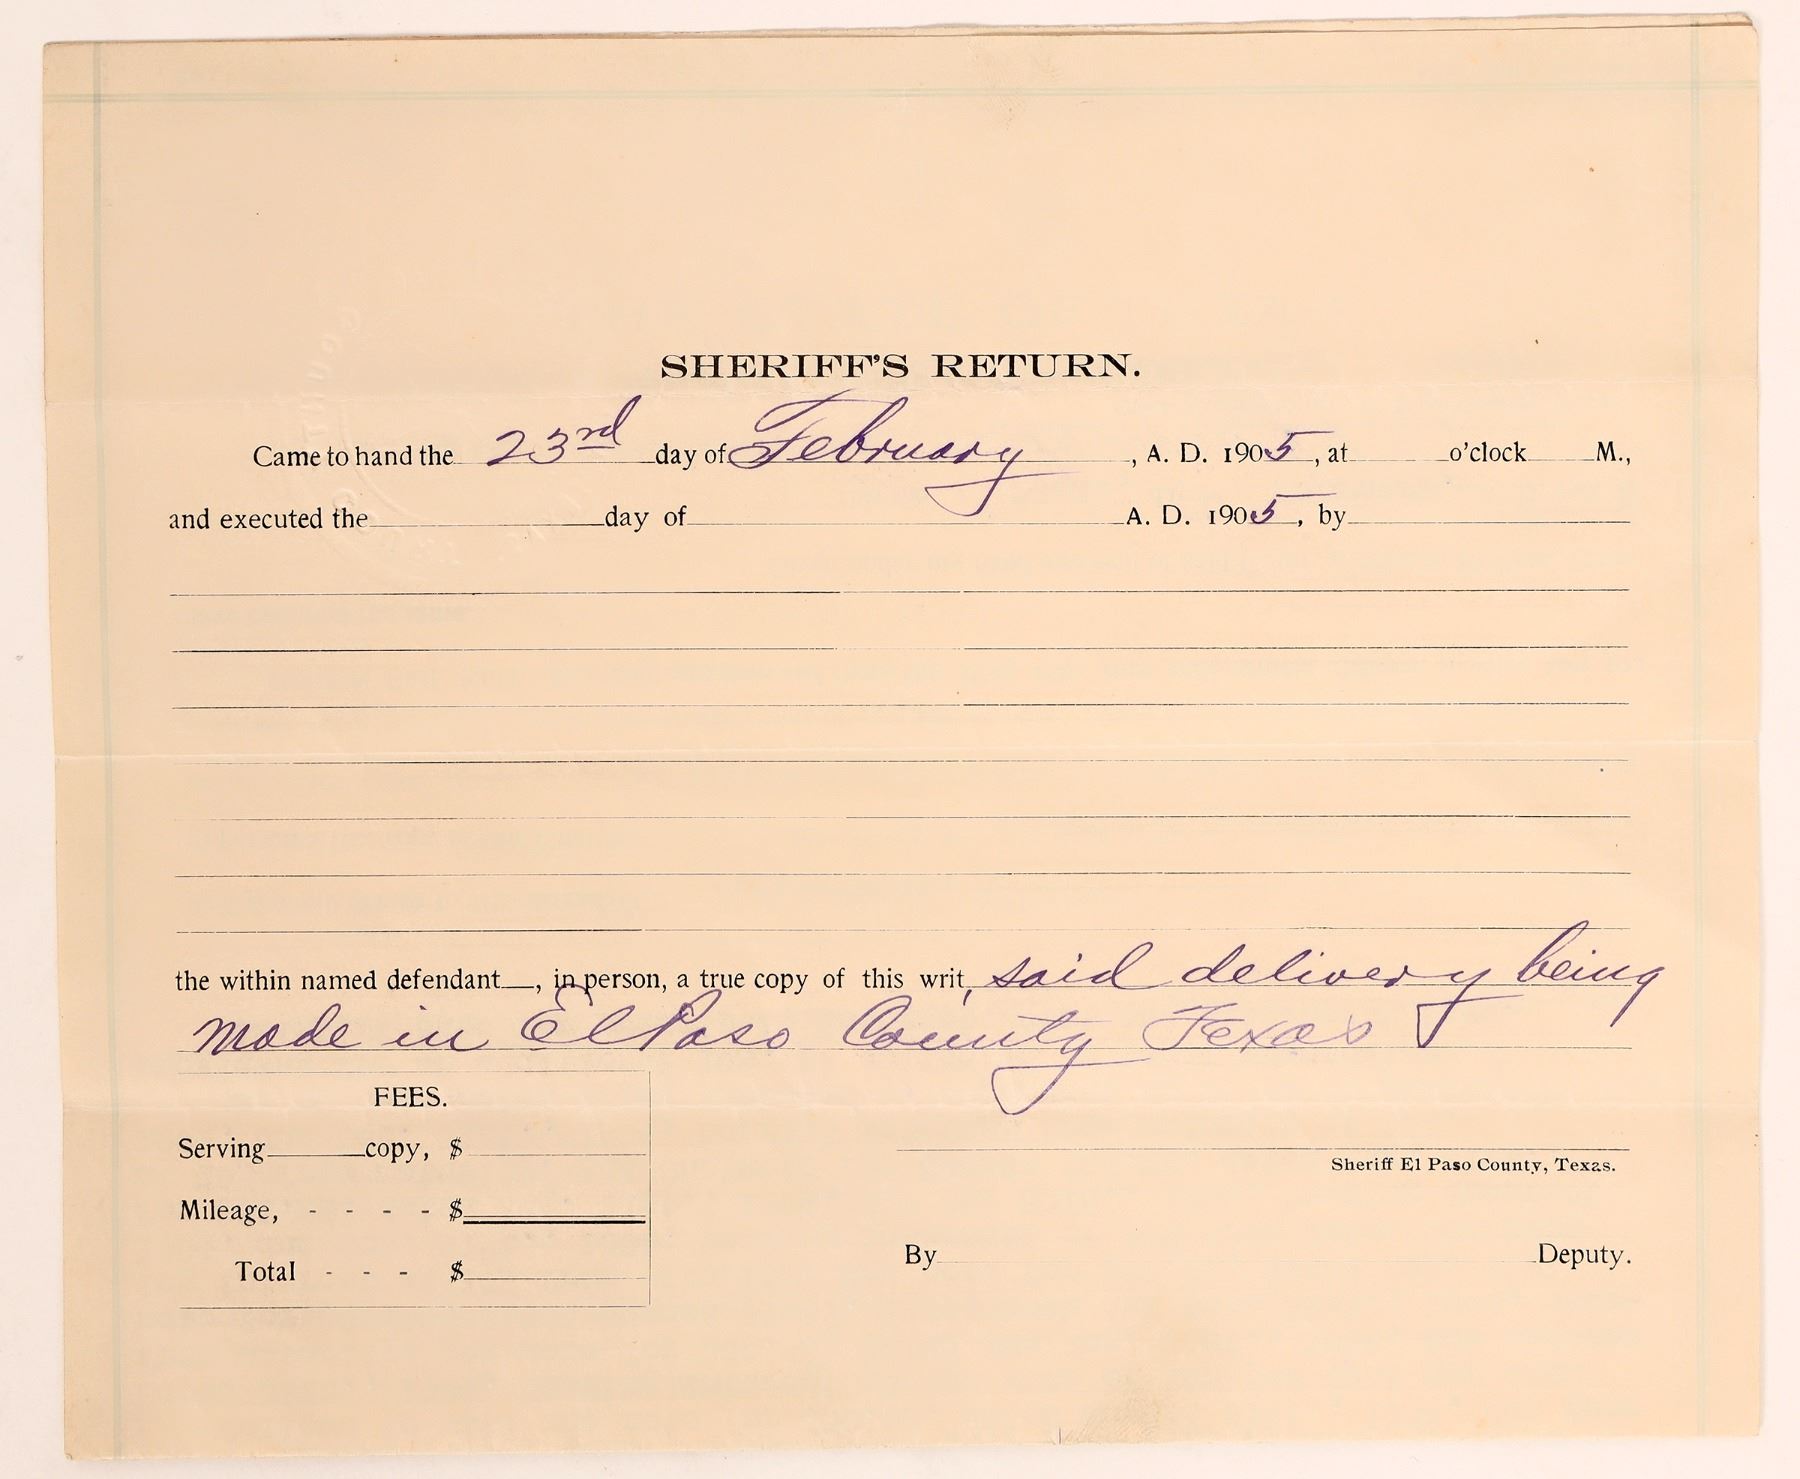 SHERIFF'S RETURN.
Came to hand the 23rd day of February, A. D. 1905, at o'clock M.,
and executed the day of A. D. 1905, by
the within named defendant, in person, a true copy of this writ, said delivery being
made in El Paso County Texas
FEES.
Serving copy, $
Sheriff El Paso County, Texas.
Mileage, - - - - $
By Deputy.
Total - - - $